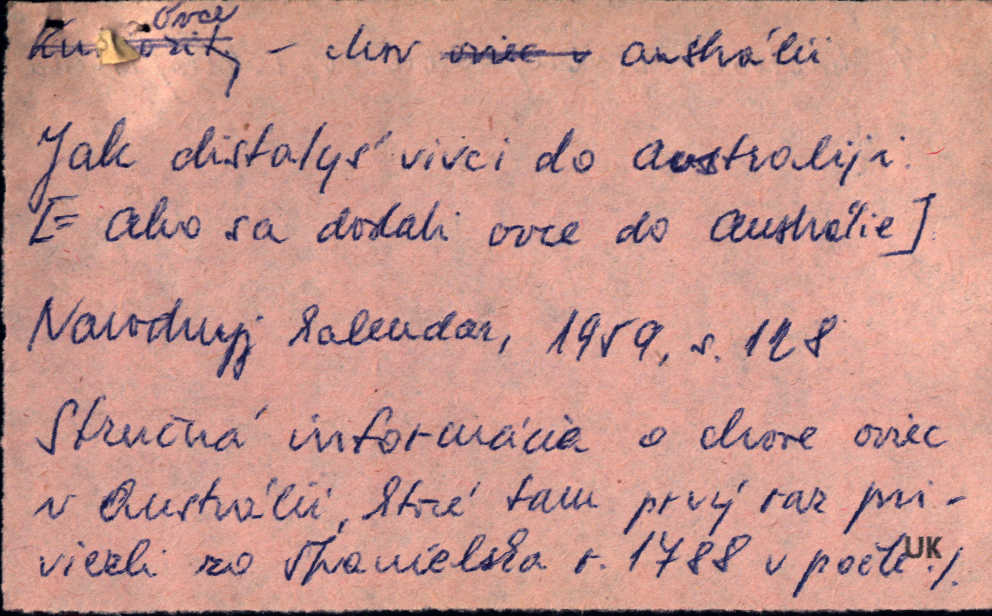 Ovce
- chov oviec v Austrálii
Jak distalyś vivci do Australiji.
[= Ako sa dostali ovce do Austrálie]
Narodnyj kalendar, 1959, s. 128
Stručná informácia o chove oviec
v Austrálii, ktoré tam prvý raz pri-
viezli zo Španielska r. 1788 v počte ./.
UK